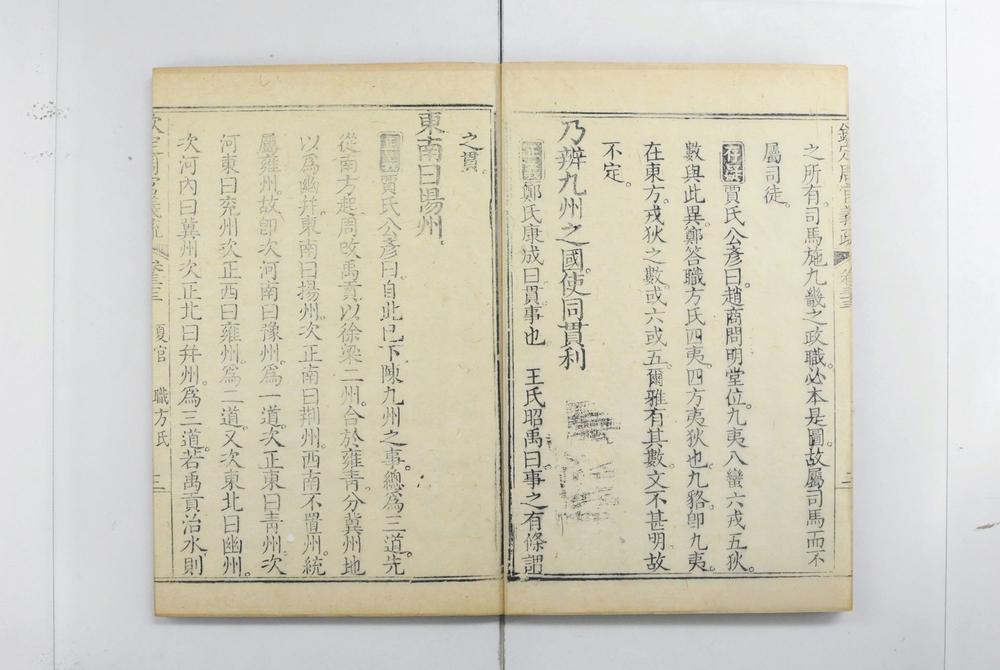 欽定周官義疏 卷三十三
之所有。司馬施九畿之政職。必本是圖。故屬司馬而不
屬司徒。
存疑 賈氏公彥曰。趙商問明堂位。九夷八蠻六戎五狄。
數與此異。鄭答職方氏四夷。四方夷狄也。九貉卽九夷。
在東方。戎狄之數。或六或五。爾雅有其數。文不甚明。故
不定。
乃辨九州之國。使同貫利
正義 鄭氏康成曰。貫。事也。 王氏昭禹曰。事之有條謂
之貫。
東南曰揚州。
正義 賈氏公彥曰。自此已下。陳九州之事。總爲三道。先
從南方起。周改禹貢。以徐梁二州。合於雍青。分冀州地
以爲幽幷。東南曰揚州。次正南曰荆州。西南不置州。統
屬雍州。故卽次河南曰豫州。爲一道。次正東曰青州。次
河東曰兖州。次正西曰雍州。爲二道。又次東北曰幽州。
次河內曰冀州。次正北曰幷州。爲三道。若禹貢治水。則
欽定周官義疏 卷三十三 夏官 職方氏 三